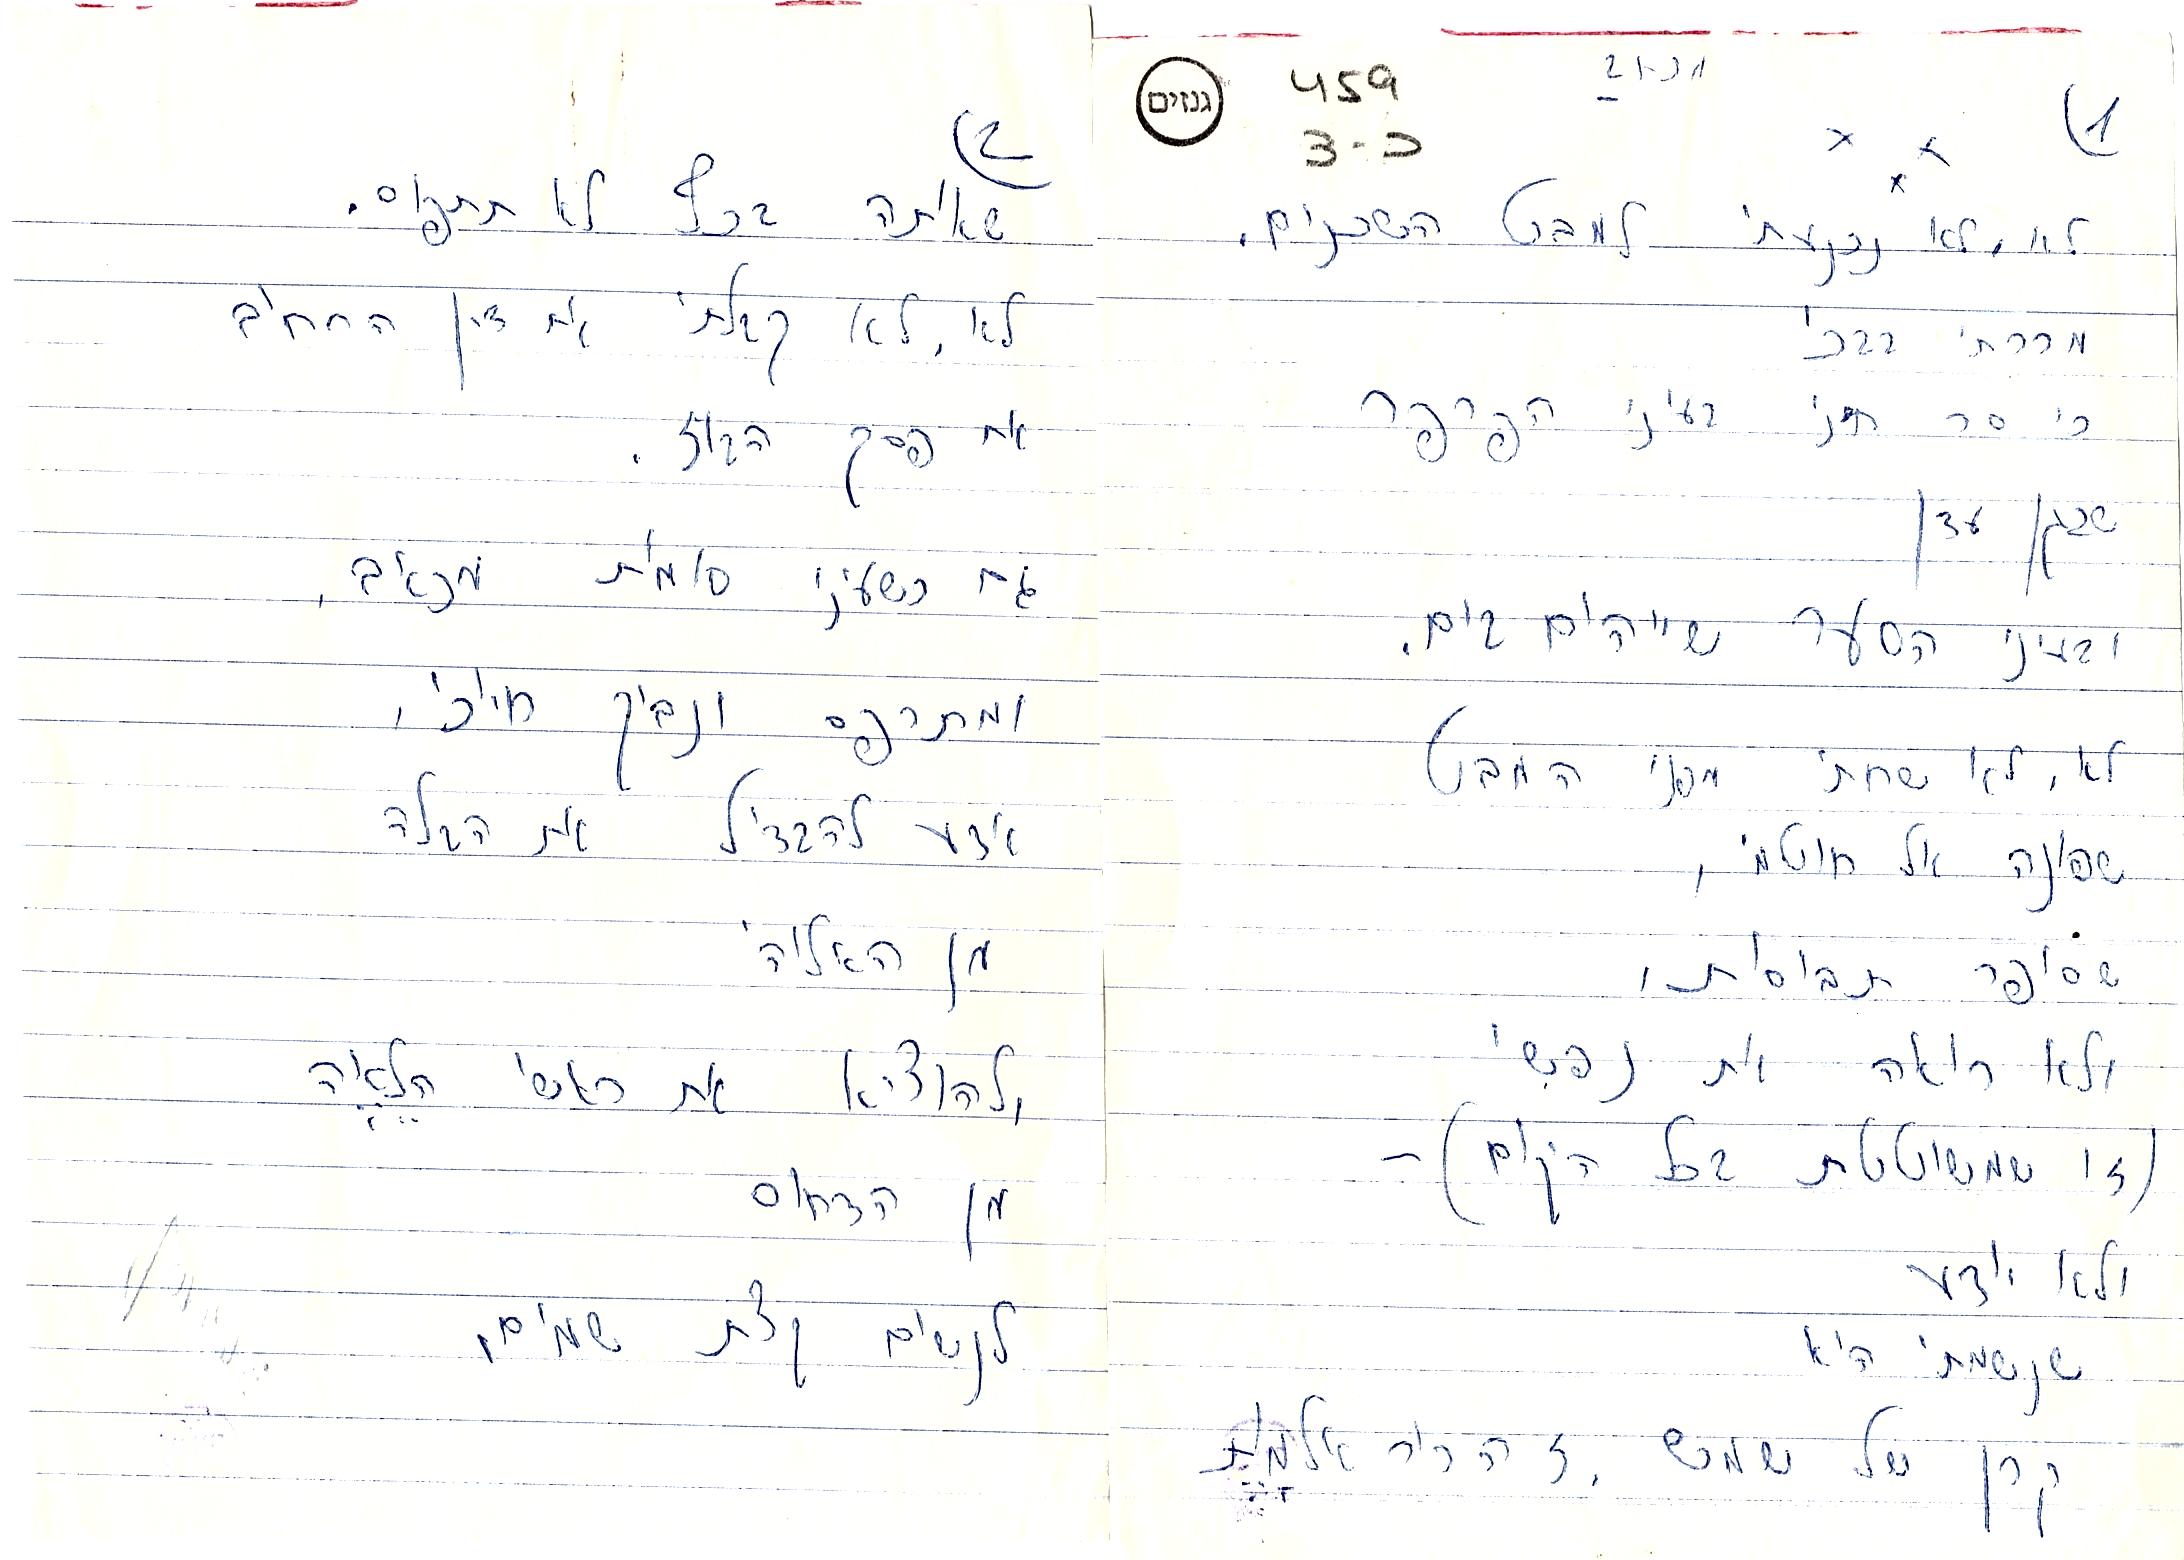 מכאוב
גנזים
459
כ-3
(1
x x x
לא, לא נכנעתי למבט השכנים.
מררתי בבכי
כי סר חני בעיני הפרפר
שבגן עדן
ובעיני הסער שייהום בים.
לא, לא שחתי מפני המבט
שפונה אל חוטמי,
שסופר תבוסות,
ולא רואה את נפשי
(זו שמשוטטת בכל היקום) –
ולא יודע
שנשמתי היא
קרן של שמש, זהריר אלמות
(2
שאותה בכף לא תתפוס.
לא, לא קבלתי את דין החרחיב
את פסק הבוז.
גם כשעיני סומות מכאיב,
ומתרפס ונביך חיוכי,
אדע להבדיל את הבלה
מן האלוהי
ולהוציא את ראשי הלאה
מן הדחוס
לנשום קצת שמים,